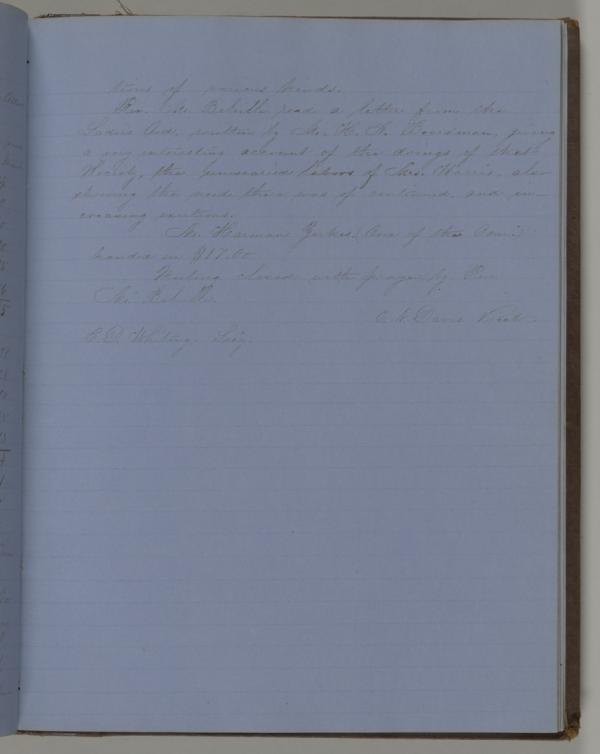 tions of various kinds.
Rev. Mr. Belville read a letter from the
Ladies Aid, written by Mr. H. A. Boardman, giving
a very interesting account of the doings of that
Society, the unwearied labors of Mrs. Harris, also
showing the need there was of continued and in-
creasing exertions.
Mr. Harman Yerkes, One of the Com.
handed in $17.00
Meeting closed with prayer by Rev.
Mr. Belville
C. N. Davis Presdt.
C. D. Whiting. Secy.